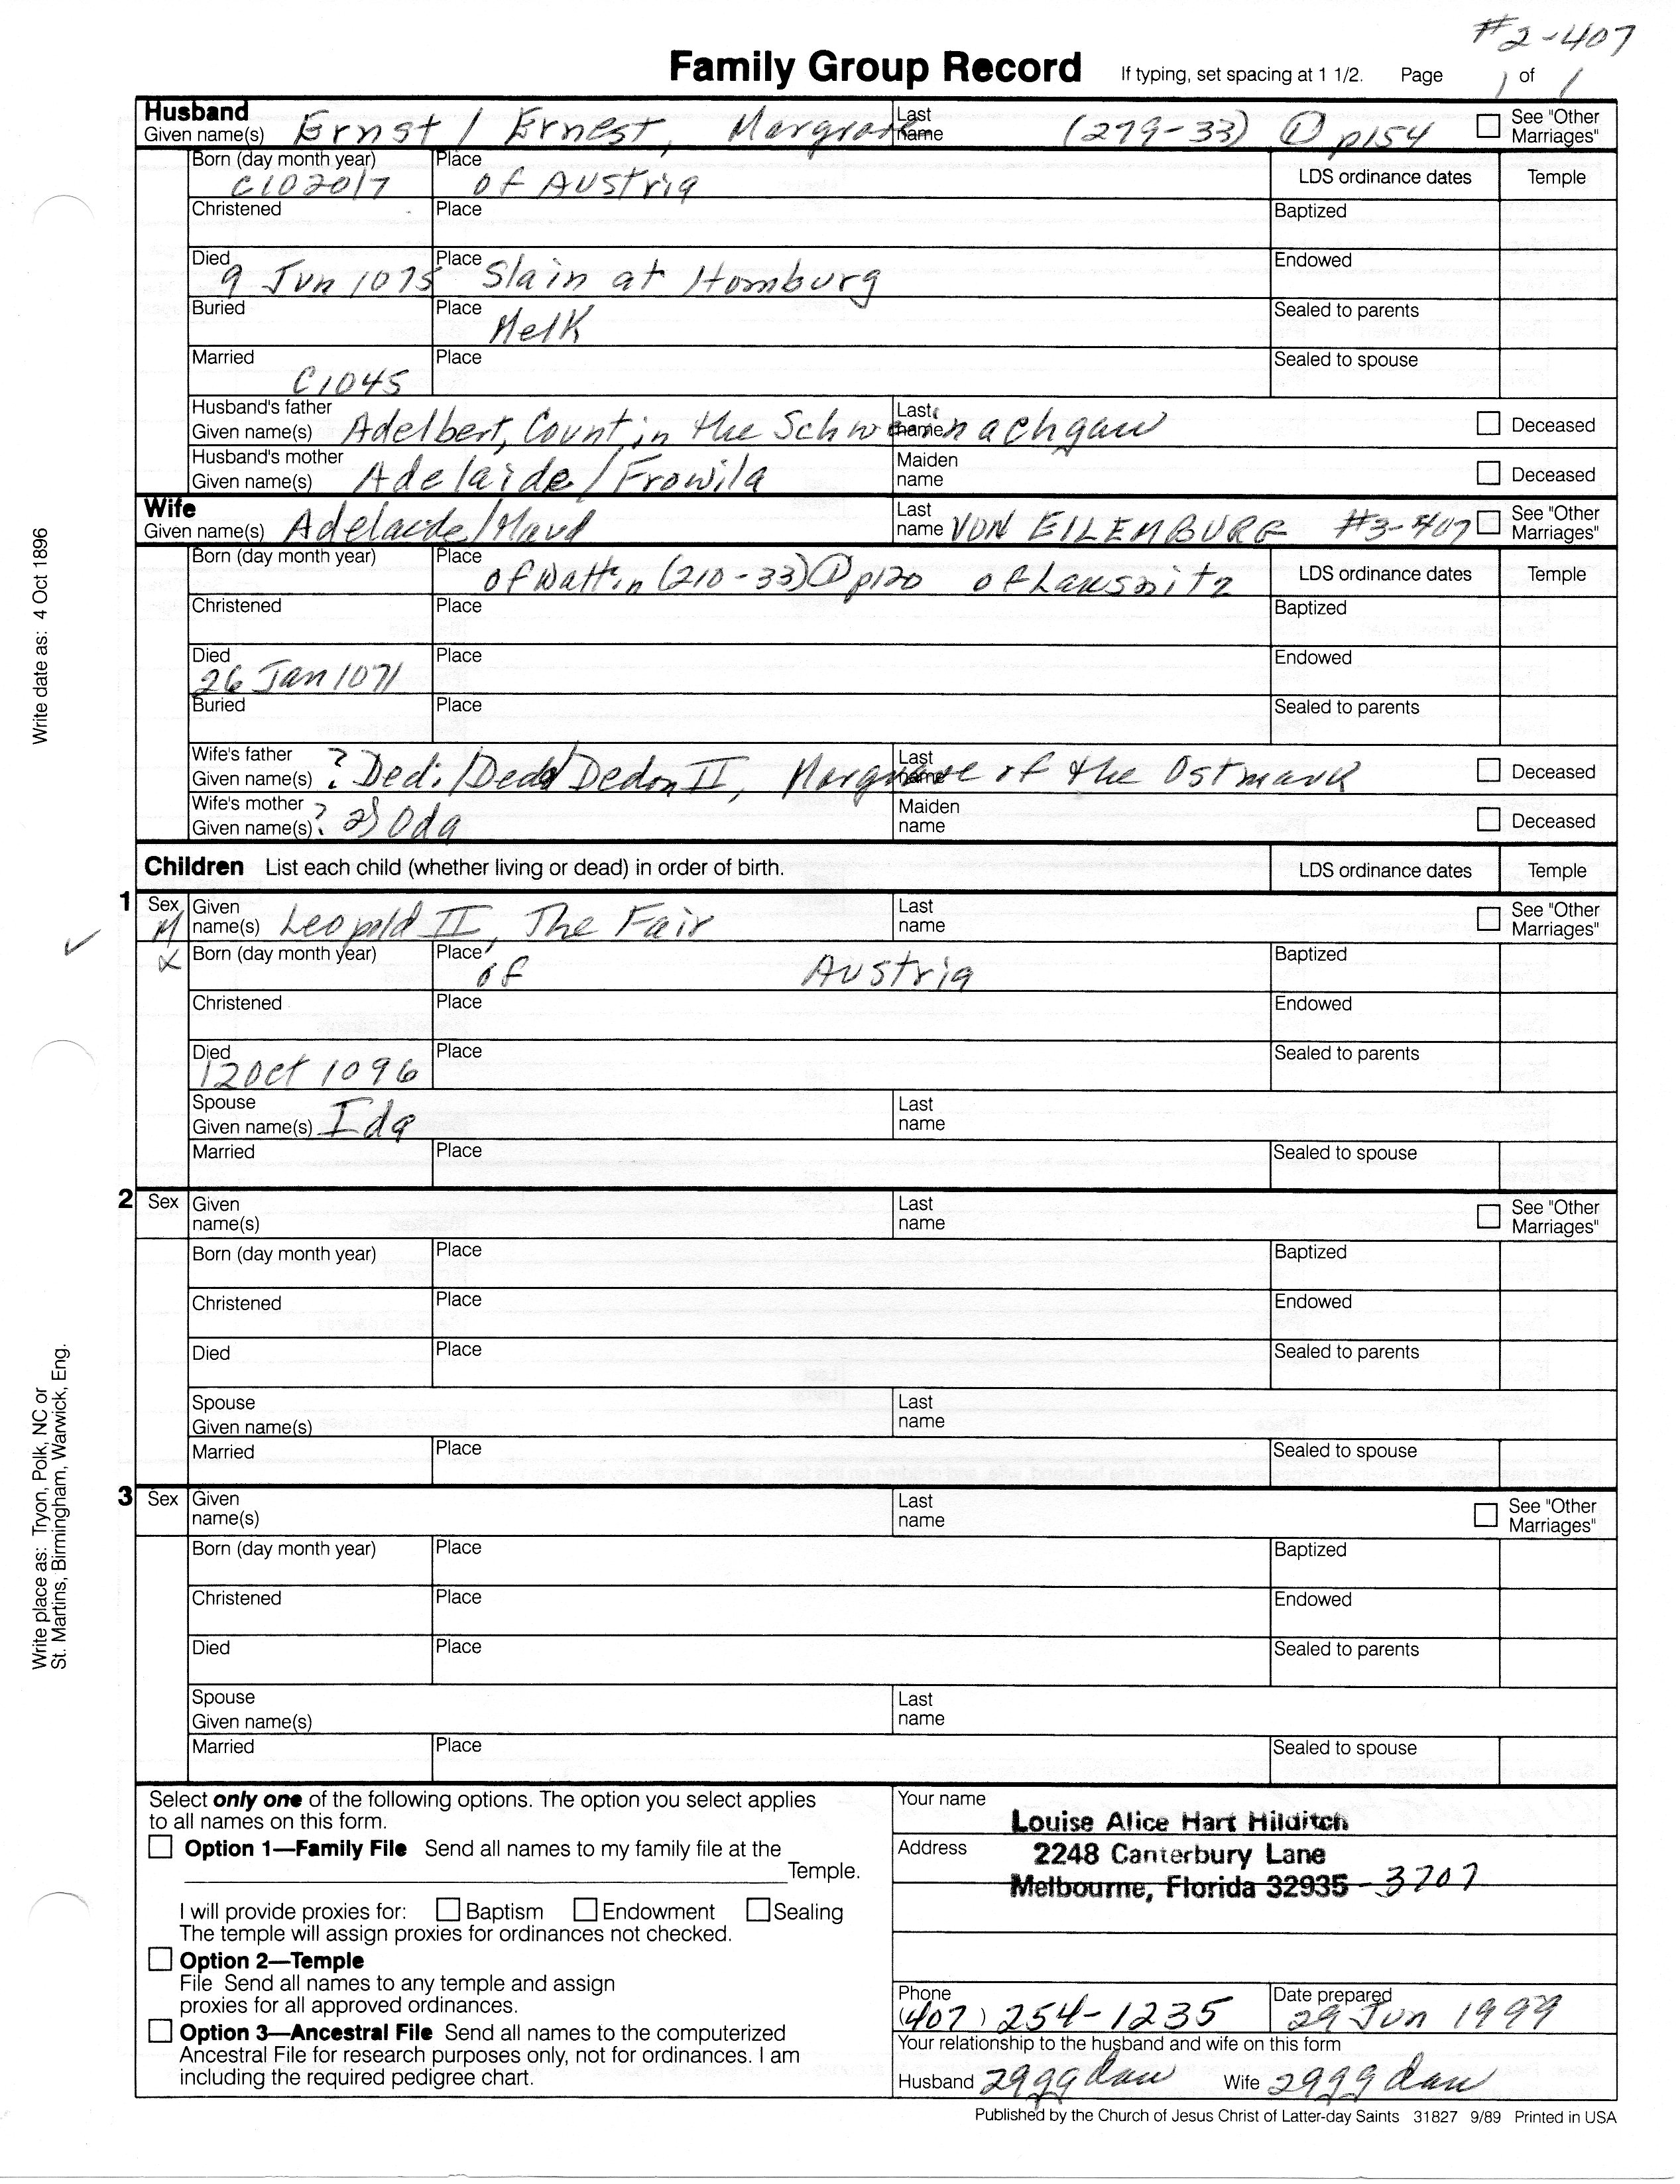 #2-407
Family Group Record If typing, set spacing at 1 1/2. Page 1 of 1
Husband
Given name(s) Ernst / Ernest, Margrave Last name (279-33) ① p154 See "Other Marriages"
Born (day month year) C1020/7 Place of Austria LDS ordinance dates Temple
Christened Place Baptized
Died 9 Jun 1075 Place Slain at Homburg Endowed
Buried Place Melk Sealed to parents
Married C1045 Place Sealed to spouse
Husband's father Given name(s) Adelbert, Count in the Schweinachgaw Last name Deceased
Husband's mother Given name(s) Adelaide/Frowila Maiden name Deceased
Wife
Given name(s) Adelaide/Maud Last name VON EILEMBURG #3-407 See "Other Marriages"
Born (day month year) Place of Wattin (210-33) ① p120 of Lausnitz LDS ordinance dates Temple
Christened Place Baptized
Died 26 Jan 1071 Place Endowed
Buried Place Sealed to parents
Wife's father Given name(s) ? Dedi/Dedo/Dedon II, Margrave of the Ostmark Last name Deceased
Wife's mother Given name(s) ? 2) Oda Maiden name Deceased
Children List each child (whether living or dead) in order of birth. LDS ordinance dates Temple
1 Sex M Given name(s) Leopold II, The Fair Last name See "Other Marriages"
X Born (day month year) Place of Austria Baptized
Christened Place Endowed
Died 12 Oct 1096 Place Sealed to parents
Spouse Given name(s) Ida Last name
Married Place Sealed to spouse
2 Sex Given name(s) Last name See "Other Marriages"
Born (day month year) Place Baptized
Christened Place Endowed
Died Place Sealed to parents
Spouse Given name(s) Last name
Married Place Sealed to spouse
3 Sex Given name(s) Last name See "Other Marriages"
Born (day month year) Place Baptized
Christened Place Endowed
Died Place Sealed to parents
Spouse Given name(s) Last name
Married Place Sealed to spouse
Write date as: 4 Oct 1896
Write place as: Tryon, Polk, NC or
St. Martins, Birmingham, Warwick, Eng.
Select only one of the following options. The option you select applies
to all names on this form.
Option 1—Family File Send all names to my family file at the
Temple.
I will provide proxies for: Baptism Endowment Sealing
The temple will assign proxies for ordinances not checked.
Option 2—Temple
File Send all names to any temple and assign
proxies for all approved ordinances.
Option 3—Ancestral File Send all names to the computerized
Ancestral File for research purposes only, not for ordinances. I am
including the required pedigree chart.
Your name Louise Alice Hart Hilditch
Address 2248 Canterbury Lane
Melbourne, Florida 32935 - 3707
Phone (407) 254-1235 Date prepared 29 Jun 1999
Your relationship to the husband and wife on this form
Husband 29ggdau Wife 29ggdau
Published by the Church of Jesus Christ of Latter-day Saints 31827 9/89 Printed in USA